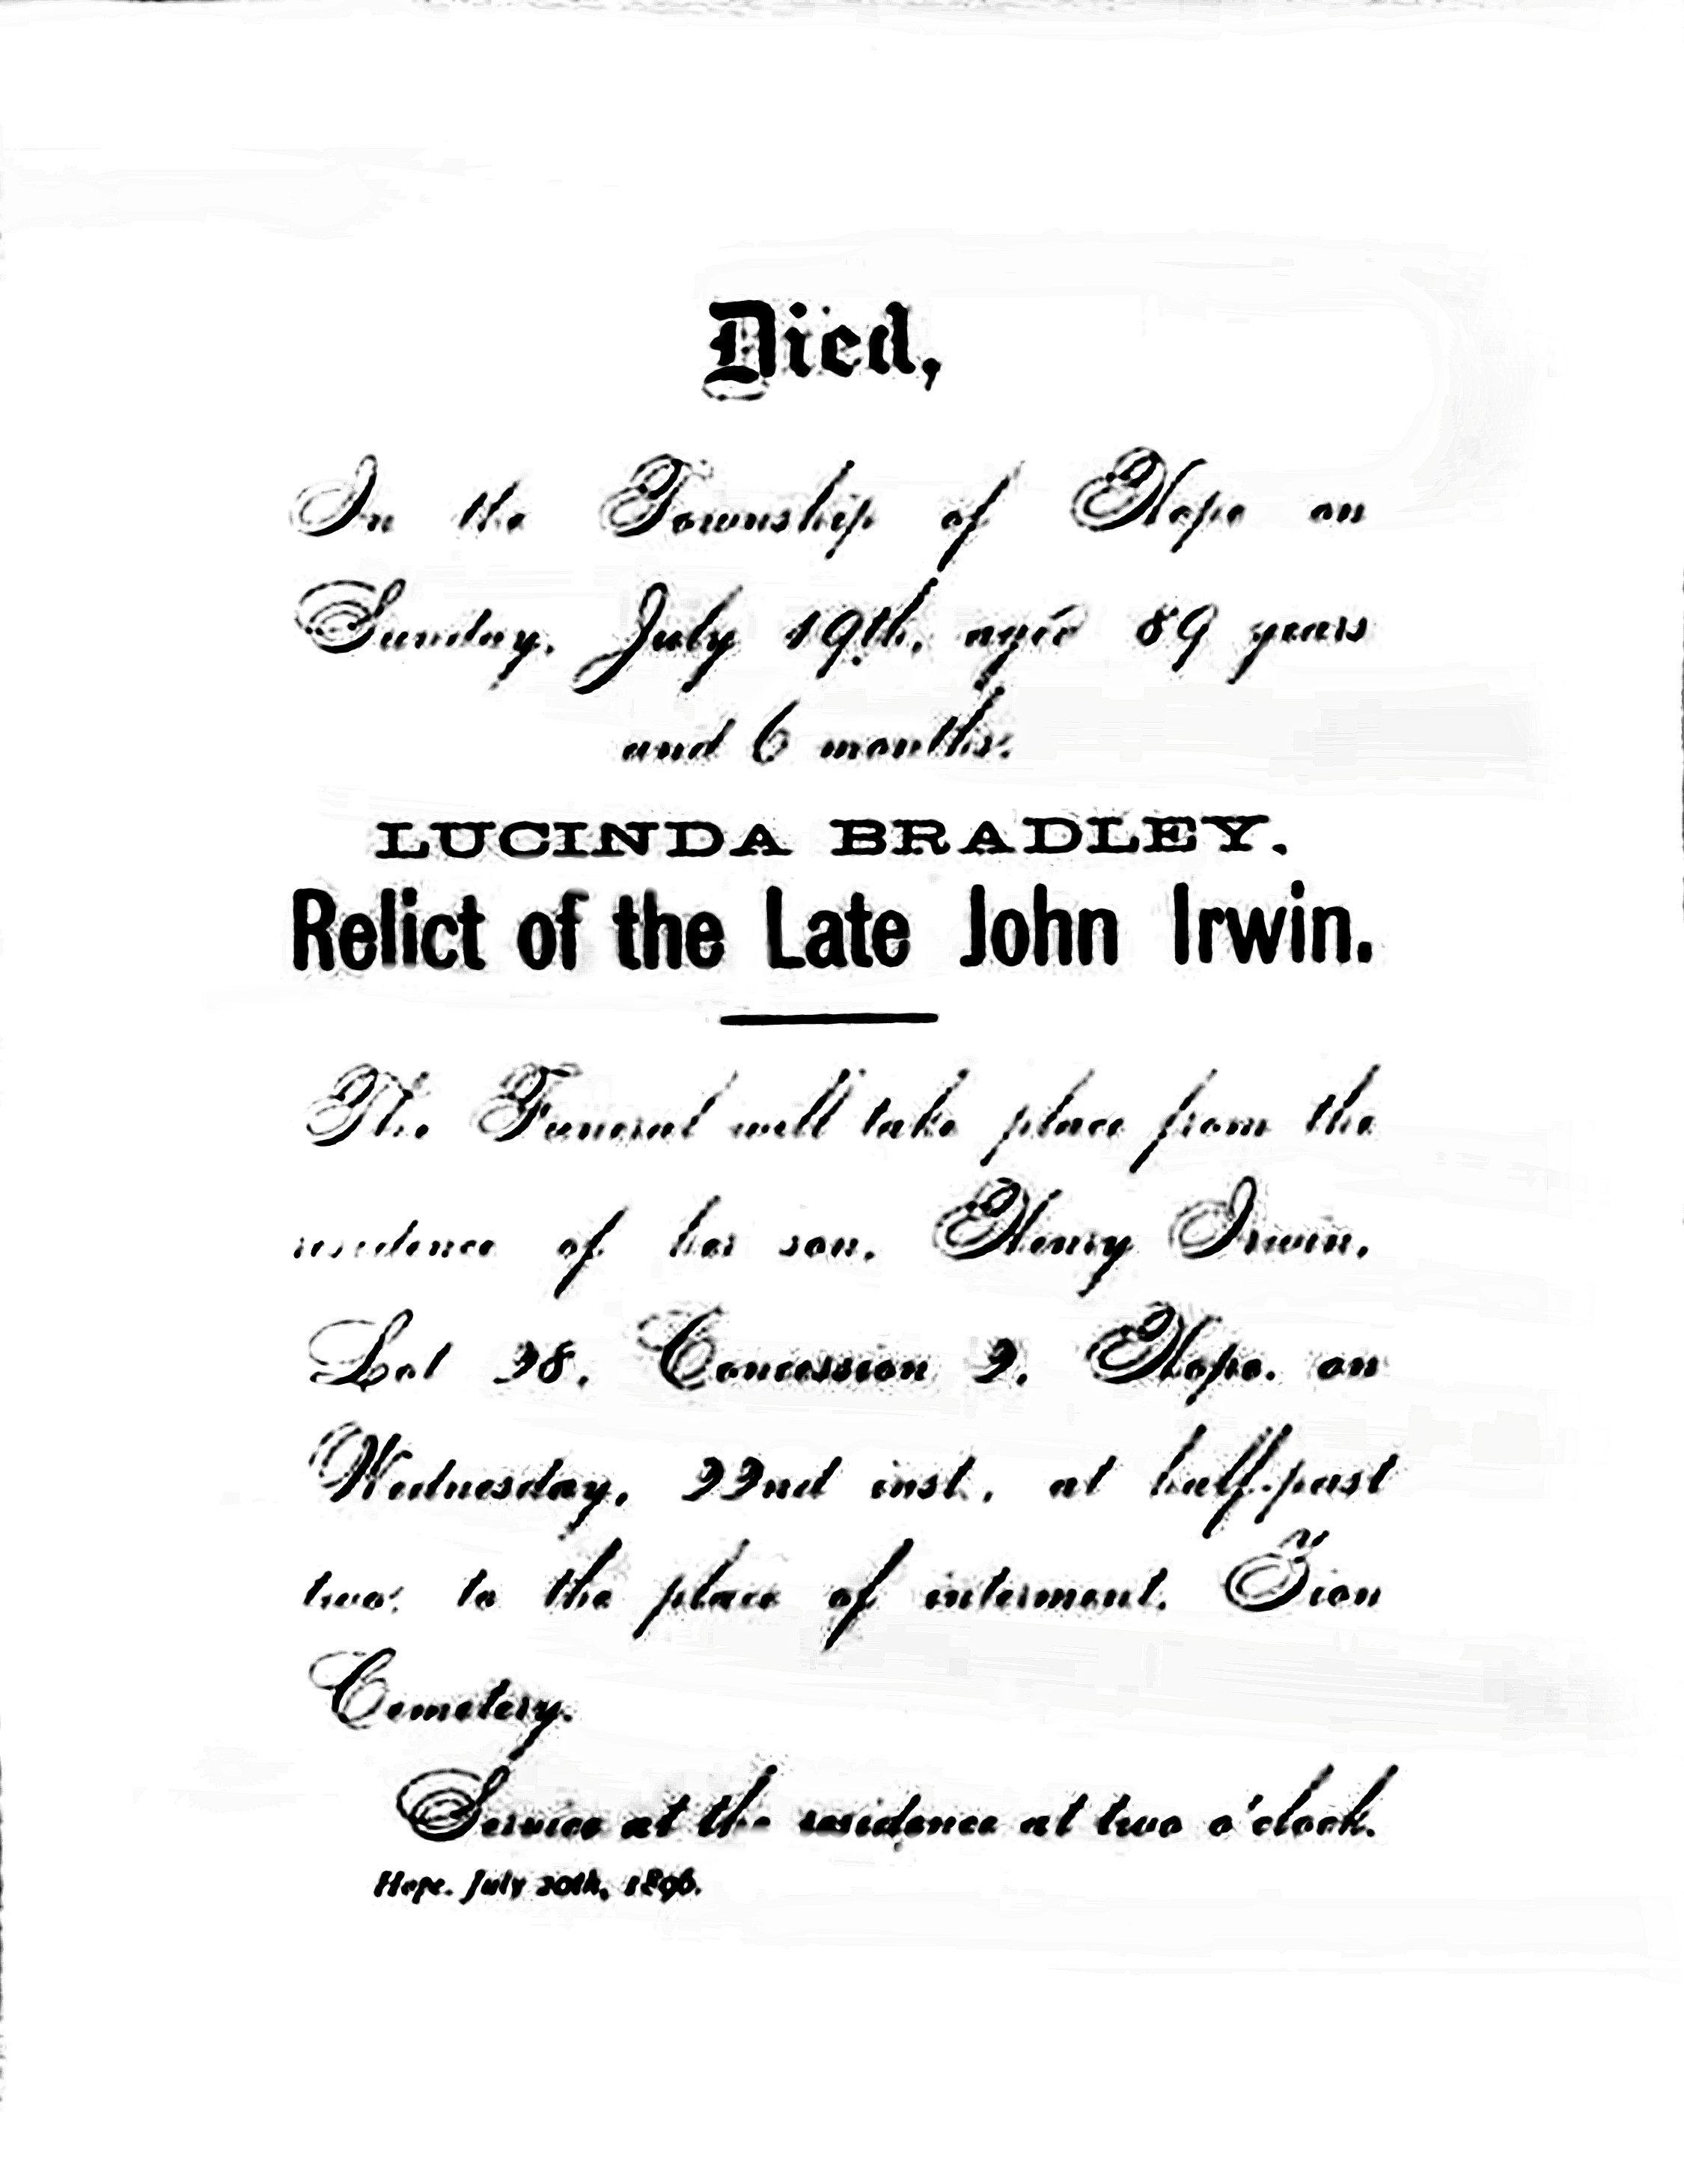 Died,
In the Township of Hope on
Sunday, July 19th, aged 89 years
and 6 months.
LUCINDA BRADLEY,
Relict of the Late John Irwin.
The Funeral will take place from the
residence of her son, Henry Irwin,
Lot 28, Concession 2, Hope, on
Wednesday, 22nd inst., at half-past
two, to the place of interment, Zion
Cemetery.
Service at the residence at two o'clock.
Hope, July 20th, 1896.